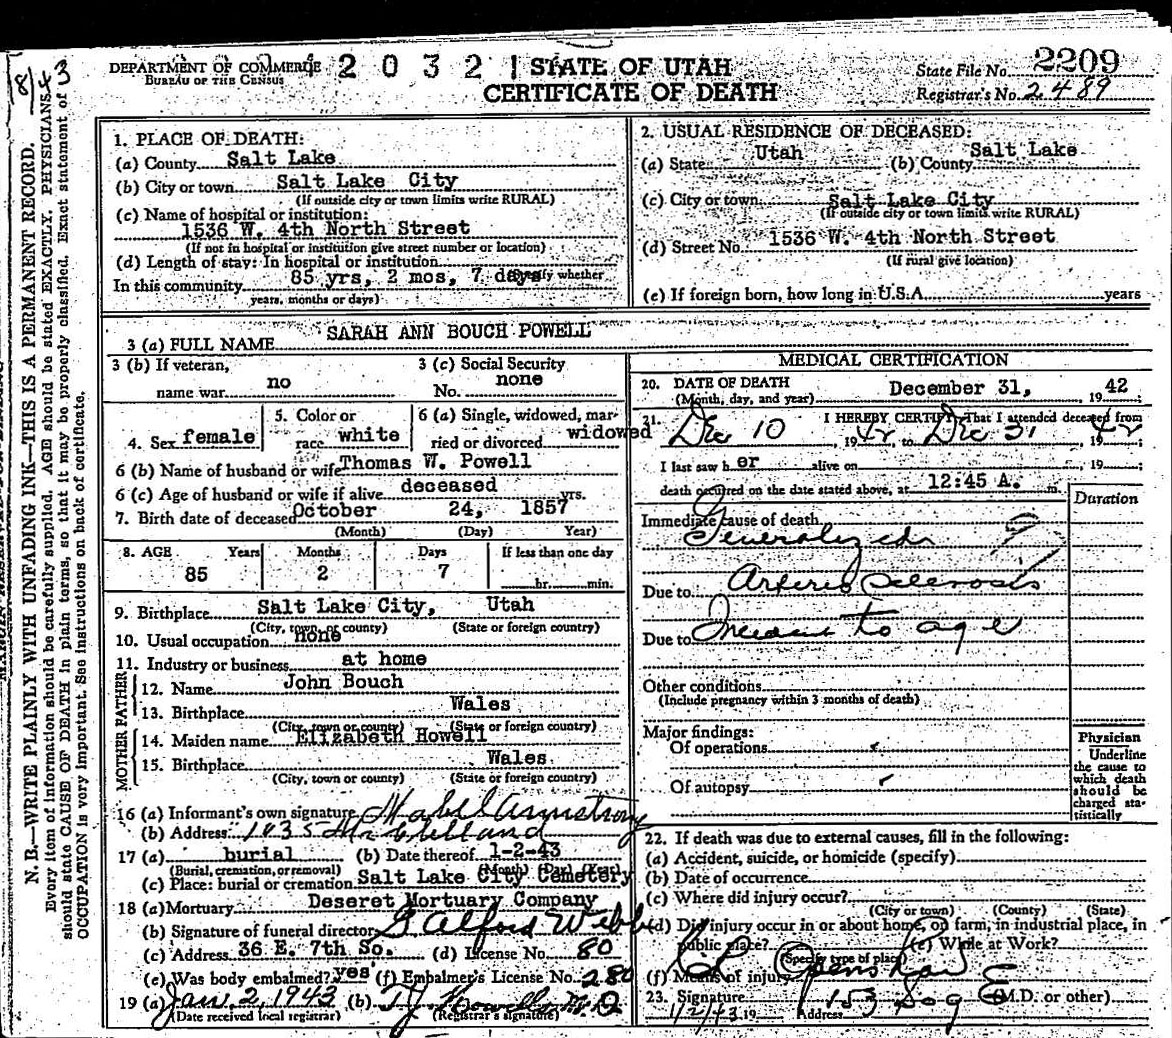 DEPARTMENT OF COMMERCE
BUREAU OF THE CENSUS
2 0 3 2 1
STATE OF UTAH
CERTIFICATE OF DEATH
State File No. 2209
Registrar's No. 2489
N. B.—WRITE PLAINLY WITH UNFADING INK—THIS IS A PERMANENT RECORD.
Every item of information should be carefully supplied. AGE should be stated EXACTLY. PHYSICIANS
should state CAUSE OF DEATH in plain terms, so that it may be properly classified. Exact statement of
OCCUPATION is very important. See instructions on back of certificate.
1. PLACE OF DEATH:
(a) County Salt Lake
(b) City or town Salt Lake City
(If outside city or town limits write RURAL)
(c) Name of hospital or institution:
1536 W. 4th North Street
(If not in hospital or institution give street number or location)
(d) Length of stay: In hospital or institution
(Specify whether
In this community 85 yrs, 2 mos, 7 days
years, months or days)
2. USUAL RESIDENCE OF DECEASED:
(a) State Utah (b) County Salt Lake
(c) City or town Salt Lake City
(If outside city or town limits write RURAL)
(d) Street No. 1536 W. 4th North Street
(If rural give location)
(e) If foreign born, how long in U.S.A. years
3 (a) FULL NAME SARAH ANN BOUCH POWELL
3 (b) If veteran,
name war no
3 (c) Social Security
No. none
4. Sex female
5. Color or
race white
6 (a) Single, widowed, mar-
ried or divorced widowed
6 (b) Name of husband or wife Thomas W. Powell
6 (c) Age of husband or wife if alive deceased yrs.
7. Birth date of deceased October 24, 1857
(Month) (Day) Year)
8. AGE Years Months Days If less than one day
85 2 7 hr. min.
9. Birthplace Salt Lake City, Utah
(City, town, or county) (State or foreign country)
10. Usual occupation none
11. Industry or business at home
FATHER
12. Name John Bouch
13. Birthplace Wales
(City, town or county) (State or foreign country)
MOTHER
14. Maiden name Elizabeth Howell
15. Birthplace Wales
(City, town or county) (State or foreign country)
16 (a) Informant's own signature Mabel Armstrong
(b) Address
17 (a) burial (b) Date thereof 1-2-43
(Burial, cremation, or removal) (Month) (Day) (Year)
(c) Place: burial or cremation Salt Lake City Cemetery
18 (a) Mortuary Deseret Mortuary Company
(b) Signature of funeral director
(c) Address 36 E. 7th So. (d) License No. 80
(e) Was body embalmed? yes (f) Embalmer's License No. 280
19 (a) Jan. 2, 1943 (b)
(Date received local registrar) (Registrar's signature)
MEDICAL CERTIFICATION
20. DATE OF DEATH
(Month, day, and year) December 31, 19 42
21. I HEREBY CERTIFY, That I attended deceased from
Dec 10, 19 42, to Dec 31, 19 42
I last saw h er alive on , 19 ;
death occurred on the date stated above, at 12:45 A. m.
Duration
Immediate cause of death
Generalized
Due to Arterio Sclerosis
Due to Incident to age
Other conditions
(Include pregnancy within 3 months of death)
Major findings:
Of operations
Of autopsy
Physician
Underline
the cause to
which death
should be
charged sta-
tistically
22. If death was due to external causes, fill in the following:
(a) Accident, suicide, or homicide (specify)
(b) Date of occurrence
(c) Where did injury occur?
(City or town) (County) (State)
(d) Did injury occur in or about home, on farm, in industrial place, in
public place? (e) While at Work?
(Specify type of place)
(f) Means of injury
23. Signature (M.D. or other)
1/2/43 19 Address